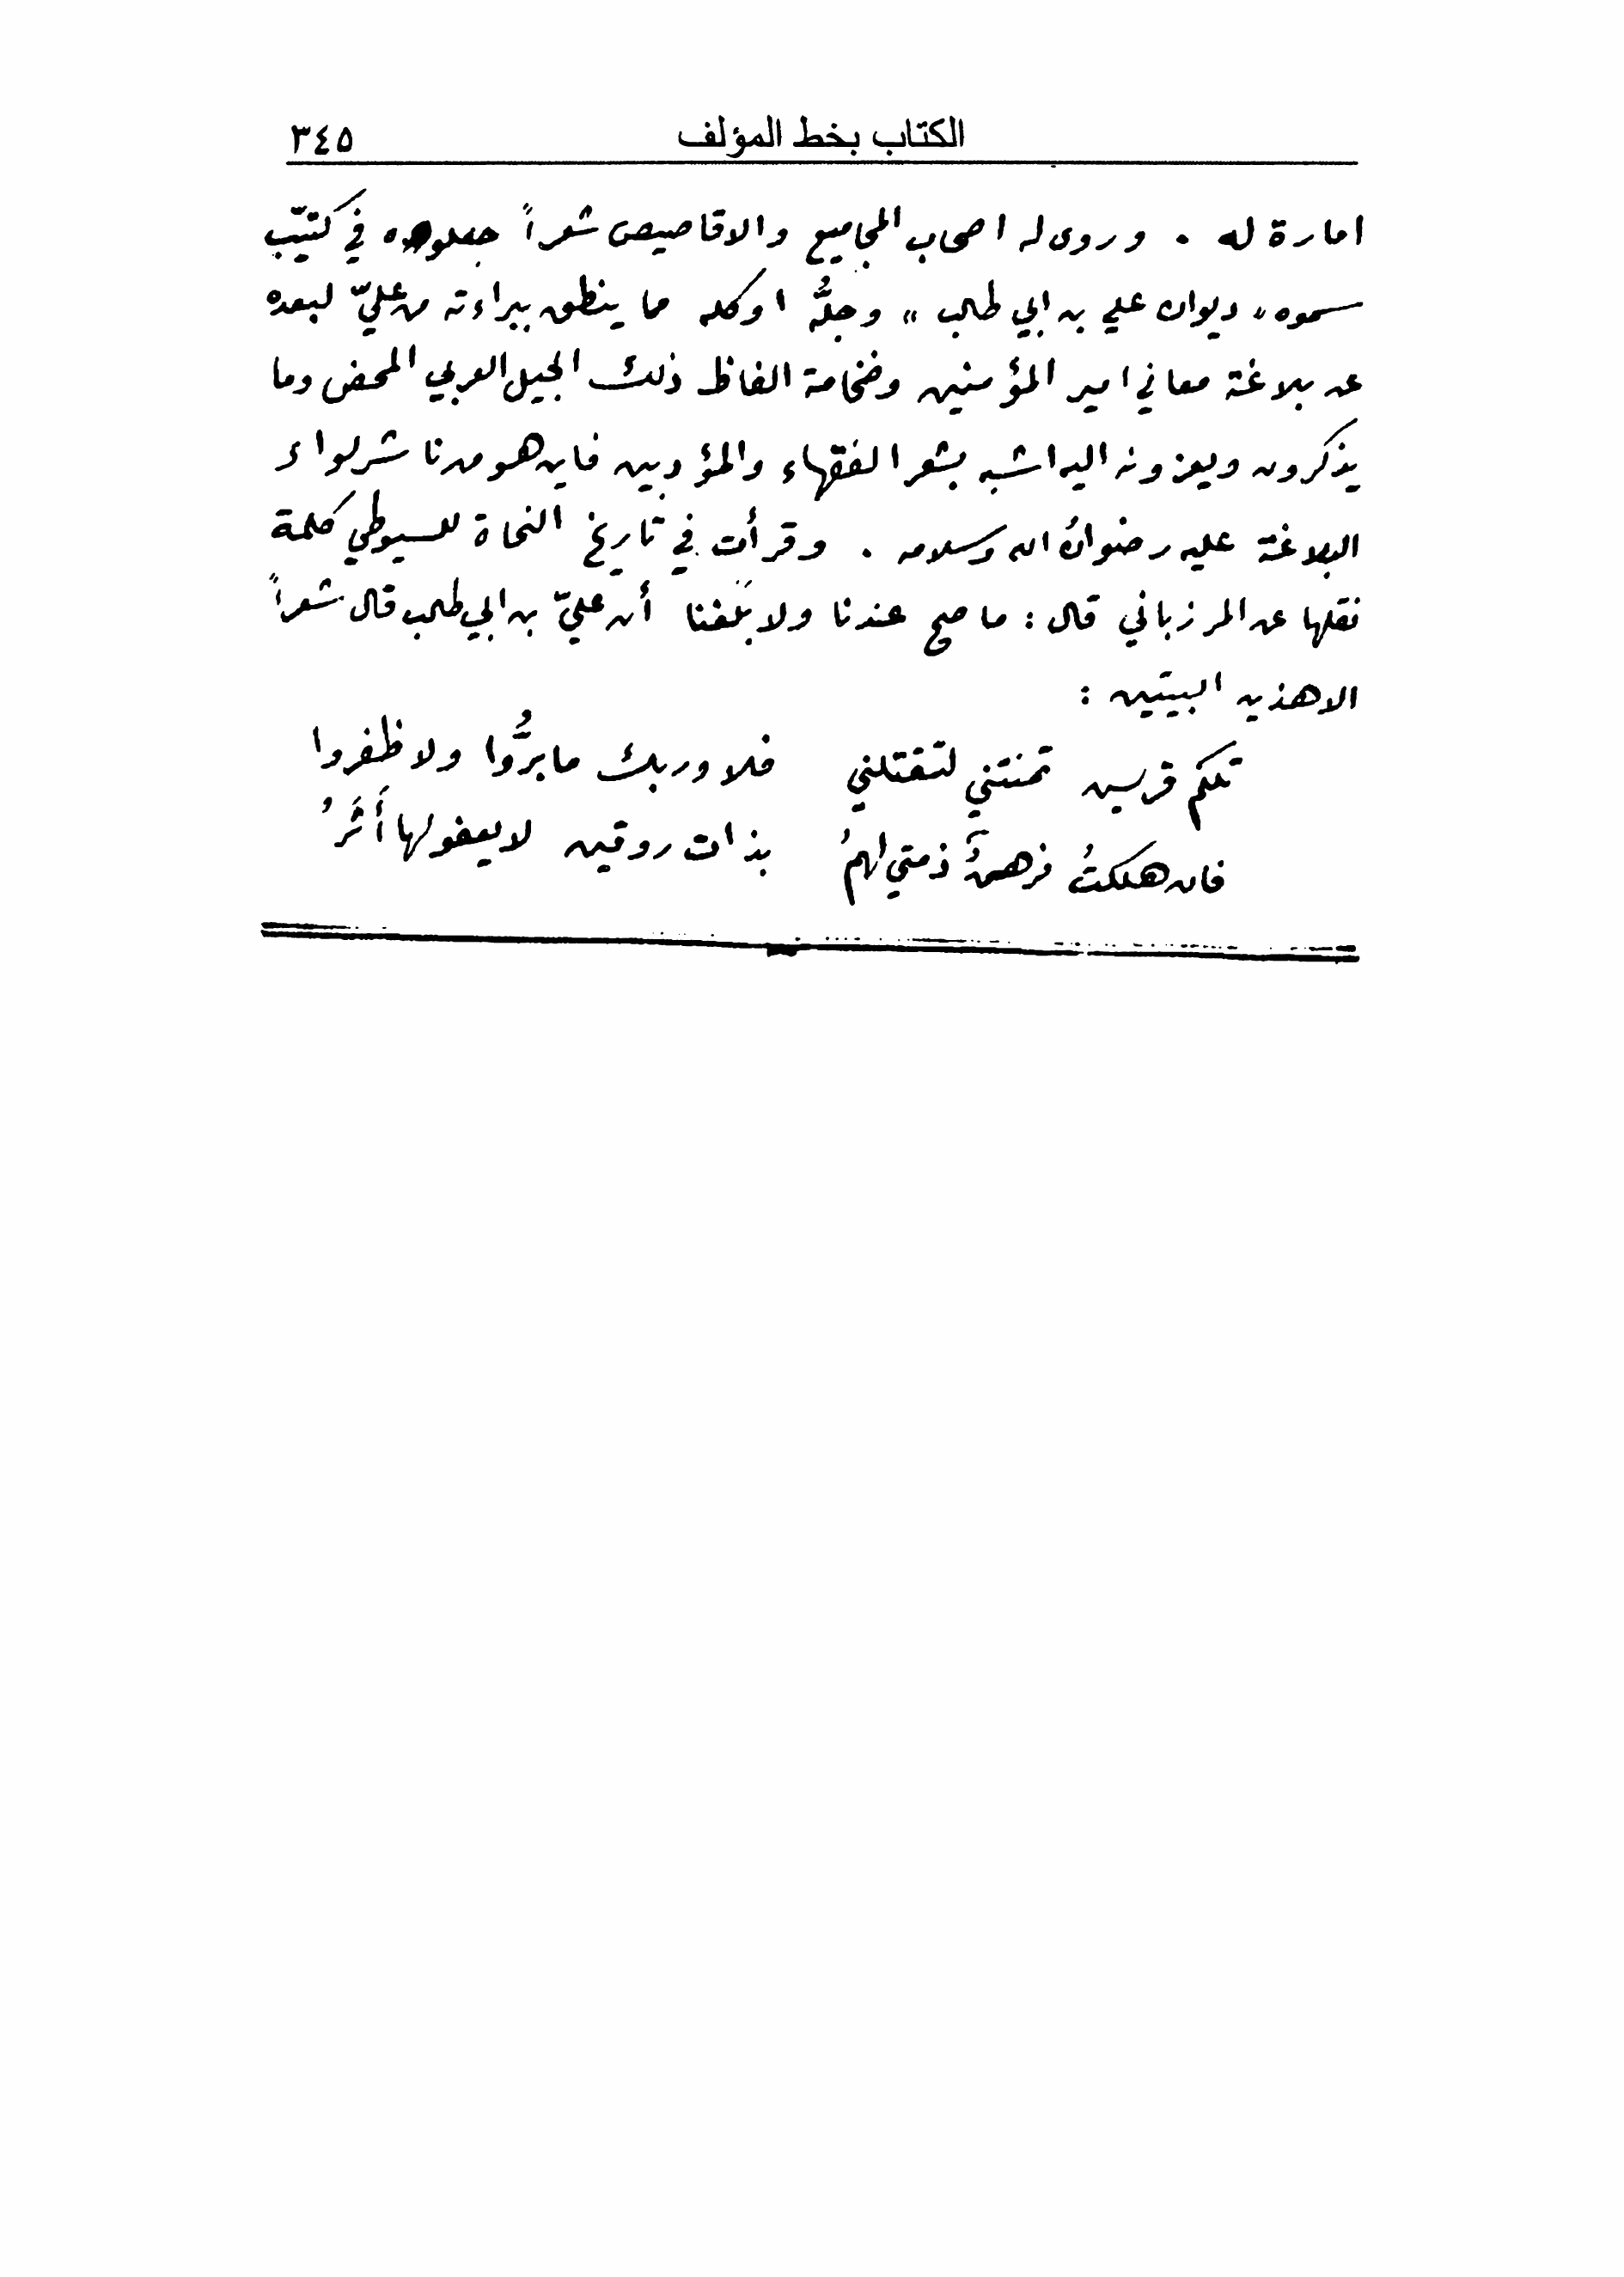 الكتاب بخط المؤلف ٣٤٥
امارة له . وروى له اصحاب المجاميع والاقاصيص شعراً جعلوه في كتيّب
سموه « ديوان علي بن ابي طالب » وجلُّه او كله مما ينطق ببراءته من عليّ لبعده
عن بلاغة معاني امير المؤمنين وفخامة الفاظ ذلك الجيل العربي المحض وما
يذكرون ويعزونه اليه اشبه بشعر الفقهاء والمؤدبين فاين هو من ناشر لواء
البلاغة عليه رضوانُ الله وسلامه . وقرأت في تاريخ النحاة للسيوطي كلمة
نقلها عن المرزباني قال : ما صح عندنا ولا بَلَغَنا أن عليّ بن ابي طالب قال شعراً
الا هذين البيتين :
تلكم قريش تمنتني لتقتلني فلا وربك ما برُّوا ولا ظفروا
فان هلكتُ فرهنٌ ذمتي لهمُ بذات روقين لا يعفو لها أَثَرُ